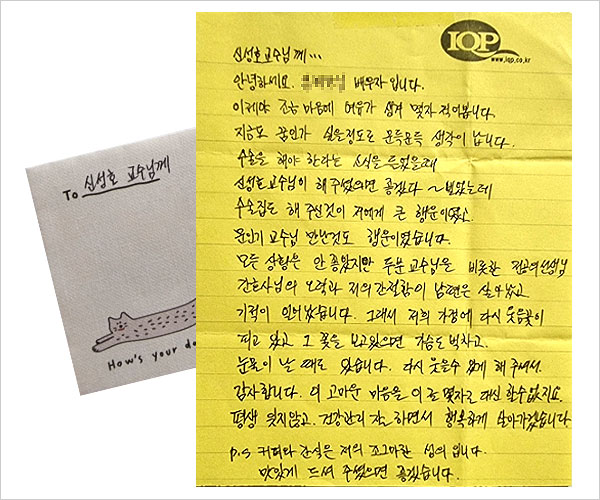 To 신성호 교수님께
How's your da
IQP
www.iqp.co.kr
신성호 교수님께...
안녕하세요. 배우자 입니다.
이제야 조금 마음에 여유가 생겨 몇자 적어봅니다.
지금도 꿈인가 싶을정도로 문득문득 생각이 납니다.
수술을 해야 한다는 소식을 들었을때
신성호교수님이 해 주셨으면 좋겠다 ~ 빌었는데
수술집도 해 주신것이 저에게 큰 행운이였고.
문인기 교수님 만난것도 행운이였습니다.
모든 상황은 안 좋았지만 두분 교수님을 비롯한 전공의선생님
간호사님의 노력과 저의간절함이 남편은 살아났고
기적이 일어났습니다. 그래서 저희 가정에 다시 웃음꽃이
피고 있고 그 꽃을 보고있으면 가슴도 벅차고.
눈물이 날 때도 있습니다. 다시 웃을수 있게 해 주셔서.
감사합니다. 이 고마운 마음을 이 몇자로 대신 할수없지요.
평생 잊지않고. 건강관리 잘 하면서 행복하게 살아가겠습니다
p.s 커피와 간식은 저의 조그마한 성의 입니다.
맛있게 드셔 주셨으면 좋겠습니다.